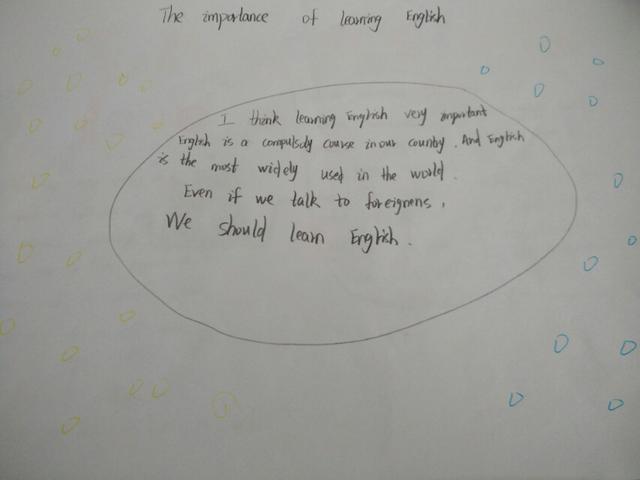 The importance of learning English
I think learning English very important
English is a compulsdy course in our country. And English
is the most widely used in the world.
Even if we talk to foreigners,
We should learn English.